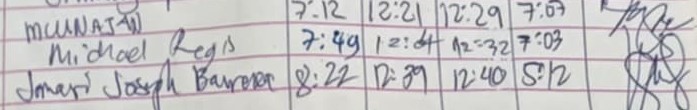 MCUNAJAN 7:12 12:21 12:29 7:07
Michael Regis 7:49 12:04 12:32 7:03
Jmari Joseph 8:22 12:39 12:40 5:12